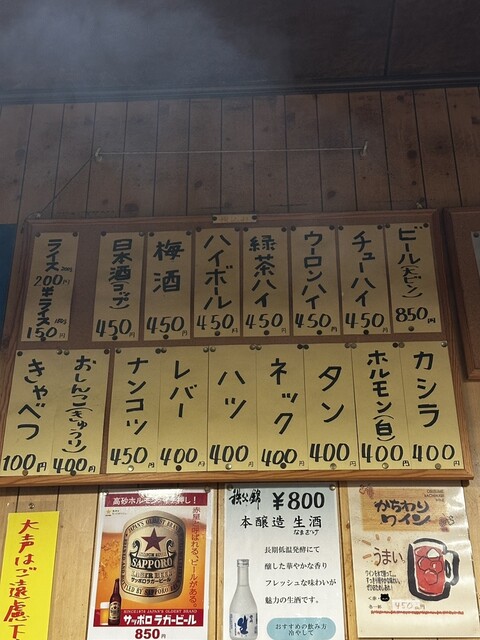 ビール(大ビン) 850円
チューハイ 450円
ウーロンハイ 450円
緑茶ハイ 450円
ハイボール 450円
梅酒 450円
日本酒(コップ) 450円
ライス 200円
半ライス 150円
カシラ 400円
ホルモン(白) 400円
タン 400円
ネック 400円
ハツ 400円
レバー 400円
ナンコツ 450円
おしんこ(きゅうり) 400円
きゃべつ 100円
大声はご遠慮下
赤星
選ばれる、ビールがある。
SAPPORO
LAGER BEER
サッポロラガービール
850円
秩父錦 ¥800
本醸造 生酒
なまざけ
長期低温発酵にて
醸した華やかな香り
フレッシュな味わいが
魅力の生酒です。
おすすめの飲み方
冷やして
かちわり
ワイン
うまい
450円